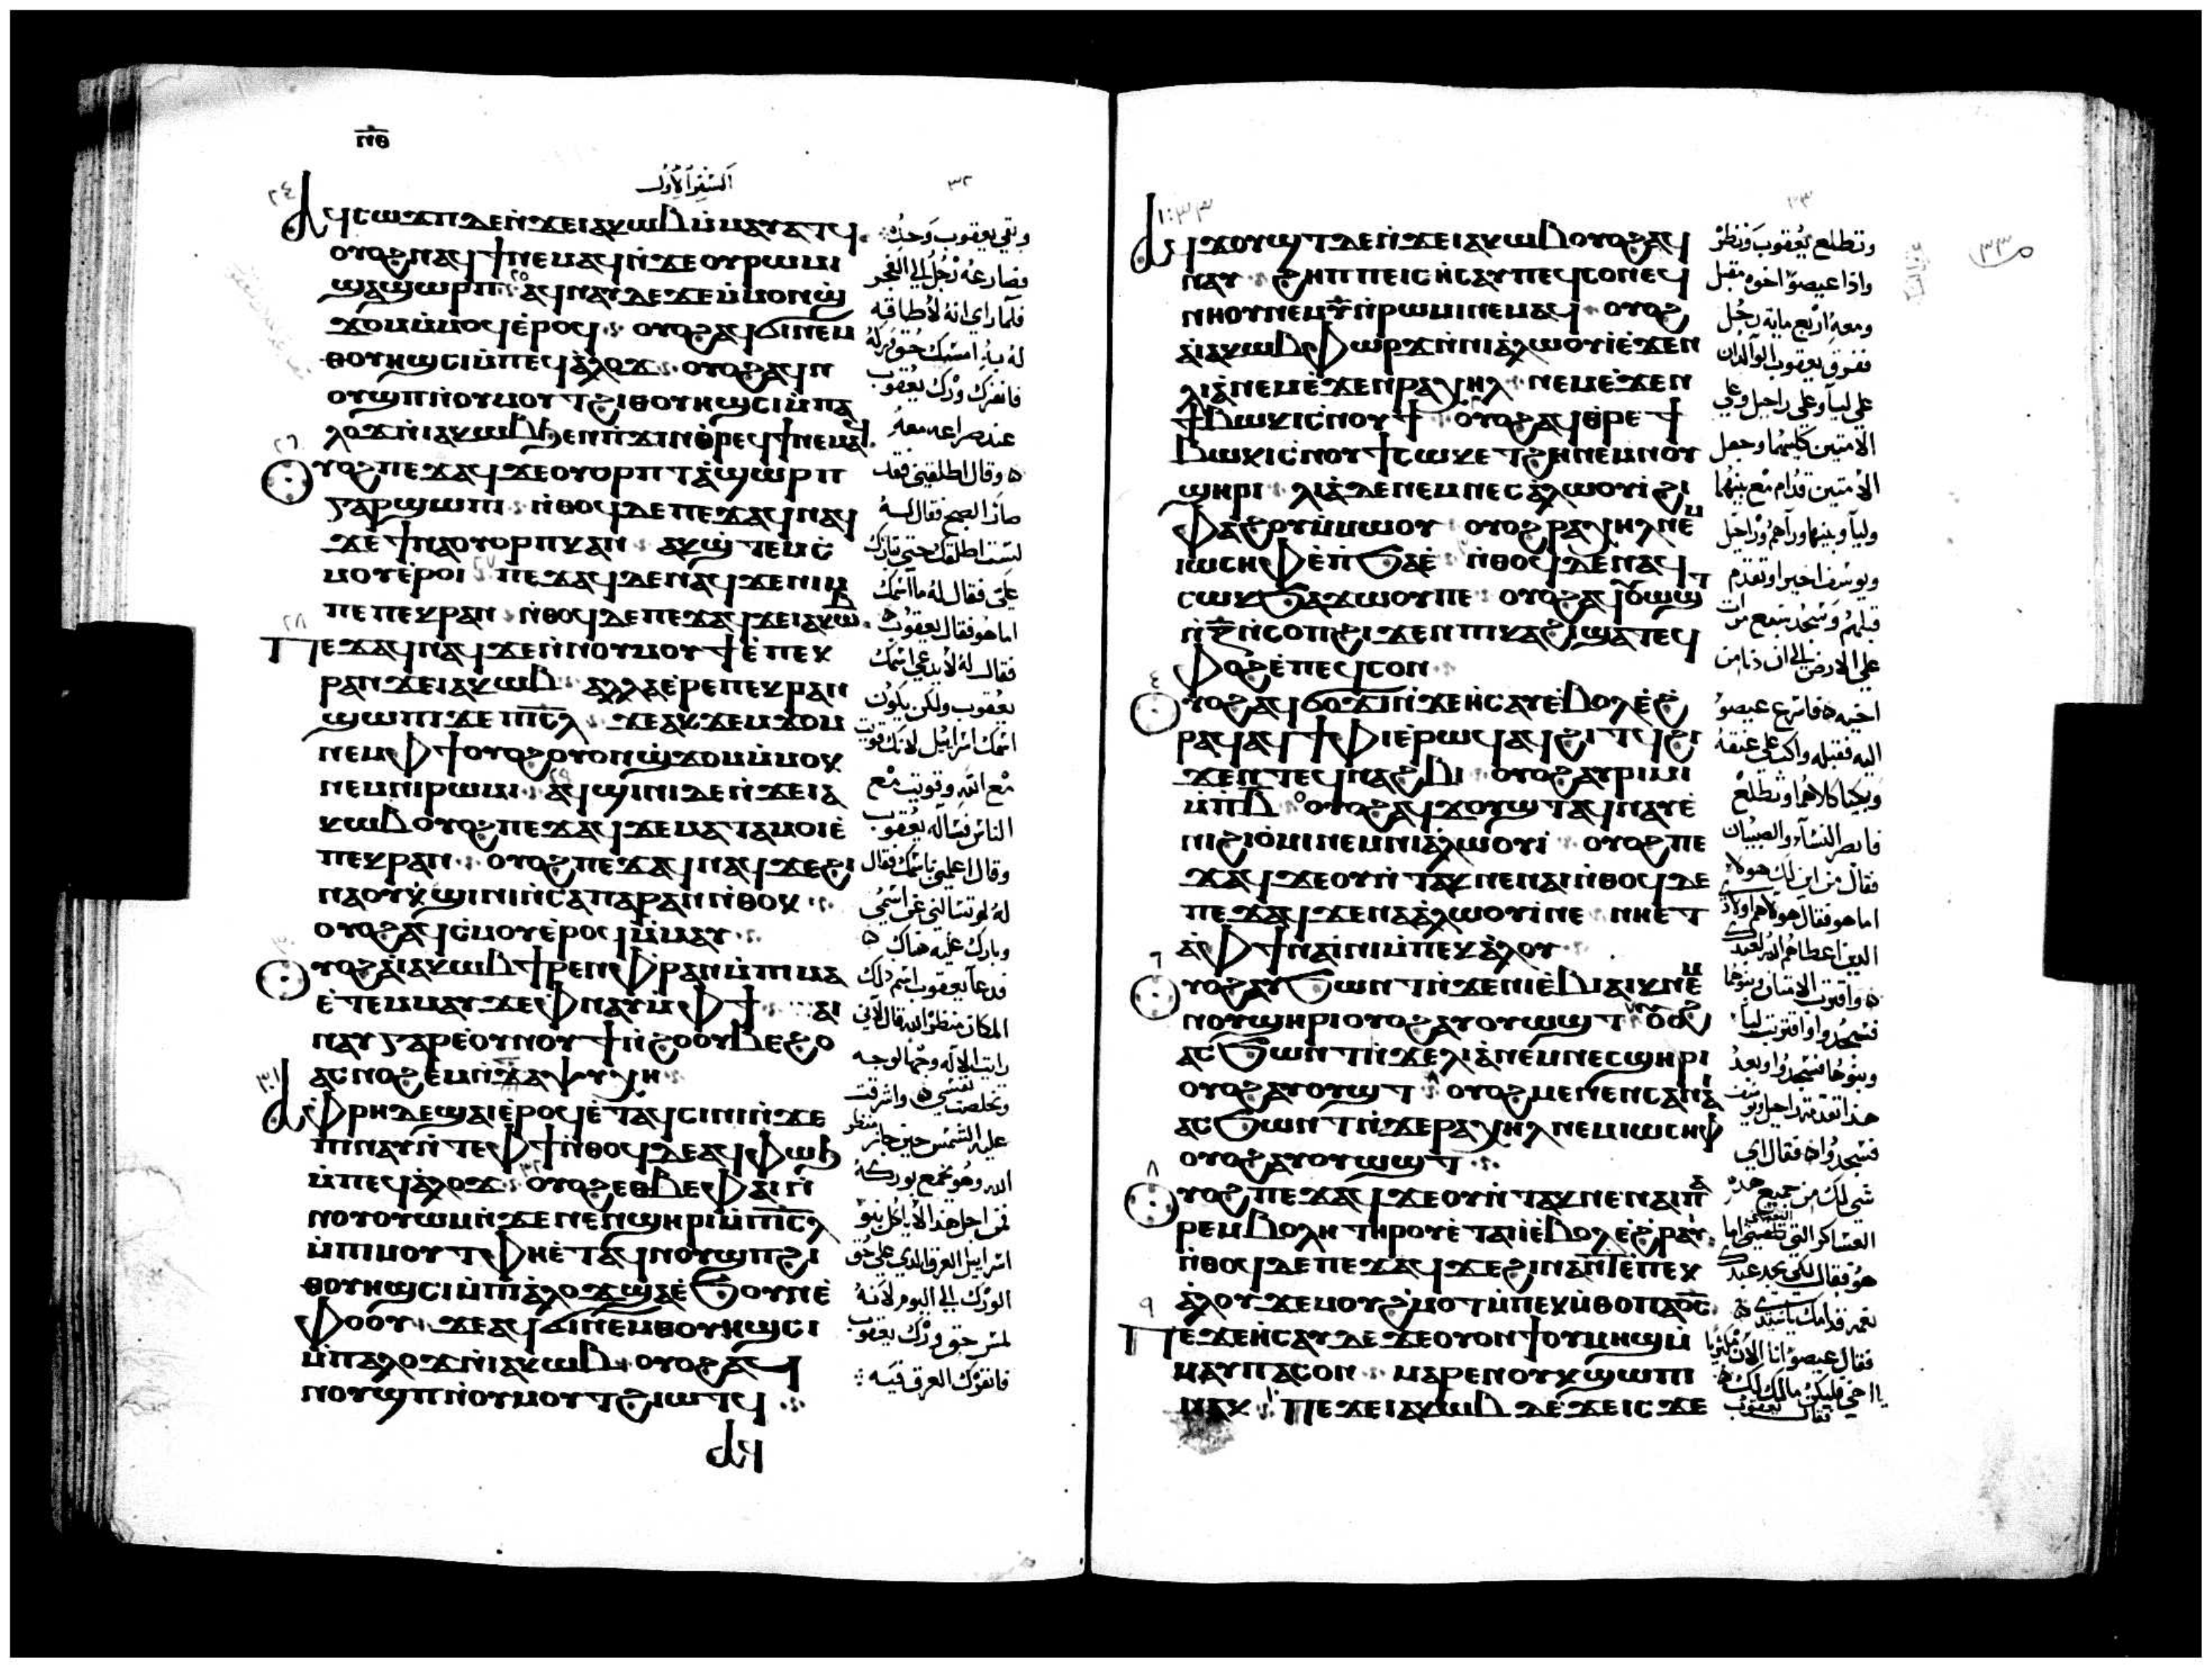 ⲡ̅ⲑ̅
السفر الاول
٣٢
٢٤
ⲁϥⲥⲱϫⲡ ⲇⲉ ⲛ̀ϫⲉ ⲓⲁⲕⲱⲃ ⲙ̀ⲙⲁⲩⲁⲧϥ
ⲟⲩⲟϩ ⲛⲁϥϯ ⲛⲉⲙⲁϥ ⲛ̀ϫⲉ ⲟⲩⲣⲱⲙⲓ
ϣⲁ ϣⲱⲣⲡ ٢٥ ⲁϥⲛⲁⲩ ⲇⲉ ϫⲉ ⲙ̀ⲙⲟⲛ ϣ̀
ϫⲟⲙ ⲙ̀ⲙⲟϥ ⲉ̀ⲣⲟϥ ⲟⲩⲟϩ ⲁϥϭⲓ ⲛⲉⲙ
ⲑⲟⲩⲏϣⲥⲓ ⲙ̀ⲡⲉϥⲁ̀ⲗⲟϫ ⲟⲩⲟϩ ⲁϥⲛ
ⲟⲩϣⲡ ⲛ̀ⲟⲩⲙⲟⲩⲧ ϩⲓ ⲑⲟⲩⲏϣⲥⲓ ⲙ̀ⲡⲁ
ⲗⲟϫ ⲛ̀ⲓⲁⲕⲱⲃ ϧⲉⲛ ⲡ̀ϫⲓⲛⲑ̀ⲣⲉϥϯ ⲛⲉⲙⲁϥ
٢٦
ⲟⲩⲟϩ ⲡⲉϫⲁϥ ϫⲉ ⲟⲩⲟⲣⲡⲧ ⲁ̀ ϣⲱⲣⲡ
ⲅⲁⲣ ϣⲱⲡⲓ ⲛ̀ⲑⲟϥ ⲇⲉ ⲡⲉϫⲁϥ ⲛⲁϥ
ϫⲉ ϯⲛⲁⲟⲩⲟⲣⲡⲕ ⲁⲛ ⲁⲕϣ̀ⲧⲉⲙⲥ̀
ⲙⲟⲩ ⲉ̀ⲣⲟⲓ ٢٧ ⲡⲉϫⲁϥ ⲇⲉ ⲛⲁϥ ϫⲉ ⲛⲓⲙ
ⲡⲉ ⲡⲉⲕⲣⲁⲛ ⲛ̀ⲑⲟϥ ⲇⲉ ⲡⲉϫⲁϥ ϫⲉ ⲓⲁⲕⲱⲃ
٢٨
ⲡⲉϫⲁϥ ⲛⲁϥ ϫⲉ ⲛ̀ⲛⲟⲩⲙⲟⲩϯ ⲉ̀ⲡⲉⲕ
ⲣⲁⲛ ϫⲉ ⲓⲁⲕⲱⲃ ⲁⲗⲗⲁ ⲉ̀ⲣⲉ ⲡⲉⲕⲣⲁⲛ
ϣⲱⲡⲓ ϫⲉ ⲡⲓ̅ⲥ̅ⲗ̅ ϫⲉ ⲁⲕϫⲉⲙϫⲟⲙ
ⲛⲉⲙ ⲫϯ ⲟⲩⲟϩ ⲟⲩⲟⲛ ϣ̀ϫⲟⲙ ⲙ̀ⲙⲟⲕ
ⲛⲉⲙ ⲛⲓⲣⲱⲙⲓ ٢٩ ⲁϥϣⲓⲛⲓ ⲇⲉ ⲛ̀ϫⲉ ⲓⲁ
ⲕⲱⲃ ⲟⲩⲟϩ ⲡⲉϫⲁϥ ϫⲉ ⲙⲁⲧⲁⲙⲟⲓ ⲉ̀
ⲡⲉⲕⲣⲁⲛ ⲟⲩⲟϩ ⲡⲉϫⲁϥ ⲛⲁϥ ϫⲉ ϩⲓ
ⲛⲁ ⲟⲩ ⲕ̀ϣⲓⲛⲓ ⲛ̀ⲥⲁ ⲡⲁⲣⲁⲛ ⲛ̀ⲑⲟⲕ
ⲟⲩⲟϩ ⲁϥⲥ̀ⲙⲟⲩ ⲉ̀ⲣⲟϥ ⲙ̀ⲙⲁⲩ
ⲟⲩⲟϩ ⲁ̀ ⲓⲁⲕⲱⲃ ϯⲣⲉⲛ ⲫ̀ⲣⲁⲛ ⲙ̀ⲡⲓⲙⲁ
ⲉ̀ⲧⲉⲙⲙⲁⲩ ϫⲉ ⲫ̀ⲛⲁⲩ ⲙ̀ⲫϯ ⲁⲓ
ⲛⲁⲩ ⲅⲁⲣ ⲉ̀ⲟⲩⲛⲟⲩϯ ⲛ̀ϩⲟ ⲟⲩⲃⲉ ϩⲟ
ⲁⲥⲛⲟϩⲉⲙ ⲛ̀ϫⲉ ⲧⲁⲯⲩⲭⲏ
٣١
ⲁ̀ ⲫ̀ⲣⲏ ⲇⲉ ϣⲁⲓ ⲉ̀ⲣⲟϥ ⲉ̀ⲧⲁϥⲥⲓⲛⲓ ⲛ̀ϫⲉ
ⲡⲓⲛⲁⲩ ⲛ̀ⲧⲉ ⲫϯ ⲛ̀ⲑⲟϥ ⲇⲉ ⲁϥⲫⲱϧ
ⲙ̀ⲡⲉϥⲁ̀ⲗⲟϫ ٣٢ ⲟⲩⲟϩ ⲉⲑⲃⲉ ⲫⲁⲓ ⲛ̀
ⲛⲟⲩⲟⲩⲱⲙ ⲛ̀ϫⲉ ⲛⲉⲛϣⲏⲣⲓ ⲙ̀ⲡⲓ̅ⲥ̅ⲗ̅
ⲙ̀ⲡⲓⲙⲟⲩⲧ ⲫⲏ ⲉ̀ⲧⲁϥⲛⲟⲩϣⲡ ϩⲓ
ⲑⲟⲩⲏϣⲥⲓ ⲙ̀ⲡⲁ̀ⲗⲟϫ ϣⲁ ⲉ̀ϧⲟⲩⲛ ⲉ̀
ⲫⲟⲟⲩ ϫⲉ ⲁϥϭⲓ ⲛⲉⲙ ⲑⲟⲩⲏϣⲥⲓ
ⲙ̀ⲡⲁⲗⲟϫ ⲛ̀ⲓⲁⲕⲱⲃ ⲟⲩⲟϩ ⲁϥ
ⲛⲟⲩϣⲡ ⲛ̀ⲟⲩⲙⲟⲩⲧ ϩⲓⲱⲧϥ
ⲁϥ
وبقي يعقوب وحده
فصارعه رجل الى الفجر
فلما راى انه لا طاقة
له به امسك حق وركه
فانفرك ورك يعقوب
عند صراعه معه
وقال اطلقني فقد
صار الصبح فقال له
لست اطلقك حتى تبارك
علي فقال له ما اسمك
اما هو فقال يعقوب
فقال له لا يدعى اسمك
يعقوب ولكن يكون
اسمك اسراييل لانك قويت
مع الله وقويت مع
الناس فساله يعقوب
وقال اعلمني باسمك فقال
له لم تسالني عن اسمي
وبارك عليه هناك
فدعا يعقوب اسم ذلك
المكان منظر الله قال لاني
رايت الاله وجها لوجه
وتخلصت نفسي واشرقت
عليه الشمس حين جاز منظر
الله وهو يخمع بوركه
فمن اجل هذا لا ياكل بنو
اسراييل العرق الذي على حق
الورك الى اليوم لانه
لمس حق ورك يعقوب
فانفرك العرق فيه
٣٣
١:٣٣
ⲁϥϫⲟⲩϣⲧ ⲇⲉ ⲛ̀ϫⲉ ⲓⲁⲕⲱⲃ ⲟⲩⲟϩ ⲁϥ
ⲛⲁⲩ ϩⲏⲡⲡⲉ ⲓⲥ ⲏⲥⲁⲩ ⲡⲉϥⲥⲟⲛ ⲉϥ
ⲛⲏⲟⲩ ⲛⲉⲙ ⲩ̅ ⲛ̀ⲣⲱⲙⲓ ⲛⲉⲙⲁϥ ⲟⲩⲟϩ
ⲁ̀ ⲓⲁⲕⲱⲃ ⲫⲱⲣϫ ⲛ̀ⲛⲓⲁ̀ⲗⲱⲟⲩⲓ̀ ⲉ̀ϫⲉⲛ
ⲗⲓⲁ̀ ⲛⲉⲙ ⲉ̀ϫⲉⲛ ⲣⲁⲭⲏⲗ ⲛⲉⲙ ⲉ̀ϫⲉⲛ
ϯⲃⲱⲕⲓ ⲥ̀ⲛⲟⲩϯ ⲟⲩⲟϩ ⲁϥⲑⲣⲉ ϯ
ⲃⲱⲕⲓ ⲥ̀ⲛⲟⲩϯ ⲥⲱⲕ ⲉⲧϩⲏ ⲛⲉⲙ ⲛⲟⲩ
ϣⲏⲣⲓ ⲗⲓⲁ̀ ⲇⲉ ⲛⲉⲙ ⲛⲉⲥⲁ̀ⲗⲱⲟⲩⲓ̀ ϩⲓ
ⲫⲁϩⲟⲩ ⲙ̀ⲙⲱⲟⲩ ⲟⲩⲟϩ ⲣⲁⲭⲏⲗ ⲛⲉⲙ
ⲓⲱⲥⲏⲫ ⲉ̀ⲡ̀ϧⲁⲉ̀ ⲛ̀ⲑⲟϥ ⲇⲉ ⲛⲁϥ
ⲥⲱⲕ ϧⲁϫⲱⲟⲩ ⲡⲉ ⲟⲩⲟϩ ⲁϥⲟⲩⲱϣⲧ
ⲛ̀ⲍ̅ ⲛ̀ⲥⲟⲡ ϩⲓϫⲉⲛ ⲡⲓⲕⲁϩⲓ ϣⲁⲧⲉϥ
ⲫⲟϩ ⲉ̀ⲡⲉϥⲥⲟⲛ
٤
ⲟⲩⲟϩ ⲁϥϭⲟϫⲓ ⲛ̀ϫⲉ ⲏⲥⲁⲩ ⲉ̀ⲃⲟⲗ ⲉ̀ϩ
ⲣⲁϥ ⲁϥϯⲫⲓ ⲉ̀ⲣⲱϥ ⲁϥϩⲓⲧϥ ϩⲓ
ϫⲉⲛ ⲧⲉϥⲛⲁϩⲃⲓ ⲟⲩⲟϩ ⲁⲩⲣⲓⲙⲓ
ⲙ̀ⲡⲃ̅ ٥ ⲟⲩⲟϩ ⲁϥϫⲟⲩϣⲧ ⲁϥⲛⲁⲩ ⲉ̀
ⲛⲓϩⲓⲟ̀ⲙⲓ ⲛⲉⲙ ⲛⲓⲁ̀ⲗⲱⲟⲩⲓ̀ ⲟⲩⲟϩ ⲡⲉ
ϫⲁϥ ϫⲉ ⲟⲩ ⲛ̀ⲧⲁⲕ ⲛⲉ ⲛⲁⲓ ⲛ̀ⲑⲟϥ ⲇⲉ
ⲡⲉϫⲁϥ ϫⲉ ⲛⲁⲁ̀ⲗⲱⲟⲩⲓ̀ ⲛⲉ ⲛⲏ ⲉⲧ
ⲁ̀ ⲫϯ ⲛⲁⲓ ⲛⲓ ⲙ̀ⲡⲉⲕⲁ̀ⲗⲟⲩ
٦
ⲟⲩⲟϩ ⲁⲩϧⲱⲛⲧ ⲛ̀ϫⲉ ⲛⲓⲉ̀ⲃⲓⲁⲓⲕ ⲛⲉⲙ
ⲛⲟⲩϣⲏⲣⲓ ⲟⲩⲟϩ ⲁⲩⲟⲩⲱϣⲧ ٧ ⲟⲩⲟϩ
ⲁⲥϧⲱⲛⲧ ⲛ̀ϫⲉ ⲗⲓⲁ̀ ⲛⲉⲙ ⲛⲉⲥϣⲏⲣⲓ
ⲟⲩⲟϩ ⲁⲩⲟⲩⲱϣⲧ ⲟⲩⲟϩ ⲙⲉⲛⲉⲛⲥⲁ ⲛⲁⲓ
ⲁⲥϧⲱⲛⲧ ⲛ̀ϫⲉ ⲣⲁⲭⲏⲗ ⲛⲉⲙ ⲓⲱⲥⲏⲫ
ⲟⲩⲟϩ ⲁⲩⲟⲩⲱϣⲧ
٨
ⲟⲩⲟϩ ⲡⲉϫⲁϥ ϫⲉ ⲟⲩ ⲛ̀ⲧⲁⲕ ⲛⲉ ⲛⲁⲓⲡⲁ
ⲣⲉⲙⲃⲟⲗⲏ ⲧⲏⲣⲟⲩ ⲉ̀ⲧⲁⲓⲓ̀ ⲉ̀ⲃⲟⲗ ⲉ̀ϩⲣⲁⲩ
ⲛ̀ⲑⲟϥ ⲇⲉ ⲡⲉϫⲁϥ ϫⲉ ϩⲓⲛⲁ ⲛ̀ⲧⲉ ⲡⲉⲕ
ⲁ̀ⲗⲟⲩ ϫⲉⲙ ⲟⲩϩ̀ⲙⲟⲧ ⲙ̀ⲡⲉⲕⲙ̀ⲑⲟ ⲡⲁϭⲥ
٩
ⲡⲉϫⲉ ⲏⲥⲁⲩ ⲇⲉ ϫⲉ ⲟⲩⲟⲛϯ ⲟⲩⲙⲏϣ ⲙ̀
ⲙⲁⲩ ⲡⲁⲥⲟⲛ ⲙⲁⲣⲉ ⲛⲟⲩⲕ ϣⲱⲡⲓ
ⲛⲁⲕ ١٠ ⲡⲉϫⲉ ⲓⲁⲕⲱⲃ ⲇⲉ ϫⲉ ⲓⲥϫⲉ
وتطلع يعقوب ونظر
واذا عيصو اخوه مقبل
ومعه اربع ماية رجل
ففرق يعقوب الوالدان
على ليا وعلى راحيل وعلى
الامتين كليهما وجعل
الامتين قدام مع بنيهما
وليا وبنيها وراهم وراحيل
ويوسف اخيرا وتقدم
قبلهم وسجد سبع مرات
على الارض الى ان دنا من
اخيه فاسرع عيصو
اليه فقبله واكب على عنقه
وبكيا كلاهما وتطلع
فابصر النساء والصبيان
فقال من اين لك هولا
اما هو فقال هولاهم اولادي
الذين اعطاهم الله لعبدك
واقتربت الامتان وبنوهما
فسجدوا واقتربت ليا
وبنوها فسجدوا وبعد
هذا تقدمت راحيل ويوسف
فسجدوا فقال اي
شي لك من جميع هذه
العساكر التي تلقتني اما
هو فقال لكي يجد عبدك
نعمة قدامك يا سيدي
فقال عيصو انا الان لي كثير يا
اخي فليكن مالك لك
فقال يعقوب